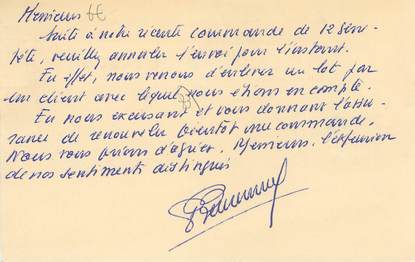 Messieurs
Suite à notre récente commande de 12 Séru-
tété, veuillez annuler l'envoi pour l'instant.
En effet, nous venons d'enlever un lot par
un client avec lequel nous étions en compte.
En nous excusant et vous donnant l'assu-
rance de renouveler bientôt une commande,
Nous vous prions d'agréer, Messieurs, l'expression
de nos sentiments distingués